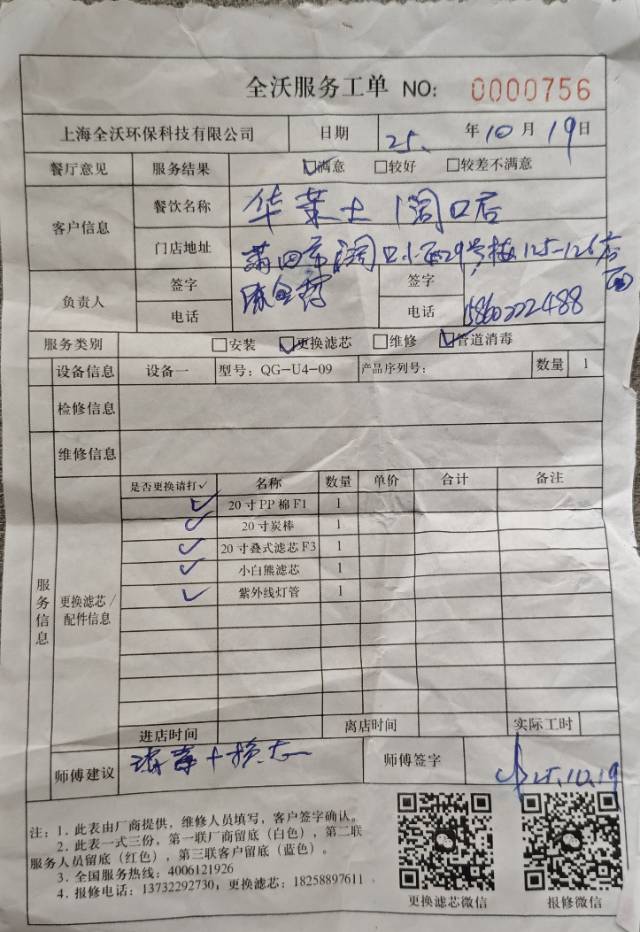 全沃服务工单 NO: 0000756
上海全沃环保科技有限公司 日期 25. 年 10 月 19 日
餐厅意见 服务结果 ☑满意 □较好 □较差不满意
客户信息 餐饮名称 华莱士 涧口店
门店地址 29号楼125-126店
负责人 签字 签字
电话 电话
服务类别 □安装 ☑更换滤芯 □维修 ☑管道消毒
设备信息 设备一 型号: QG-U4-09 产品序列号: 数量 1
检修信息
维修信息
服务信息
更换滤芯/配件信息
是否更换请打✓ 名称 数量 单价 合计 备注
✓ 20寸PP棉F1 1
✓ 20寸炭棒 1
✓ 20寸叠式滤芯F3 1
✓ 小白熊滤芯 1
✓ 紫外线灯管 1
进店时间 离店时间 实际工时
师傅建议 师傅签字 25.10.19
注: 1. 此表由厂商提供, 维修人员填写, 客户签字确认。
2. 此表一式三份, 第一联厂商留底 (白色), 第二联
服务人员留底 (红色), 第三联客户留底 (蓝色)。
3. 全国服务热线: 4006121926
4. 报修电话: 13732292730, 更换滤芯: 18258897611
更换滤芯微信 报修微信